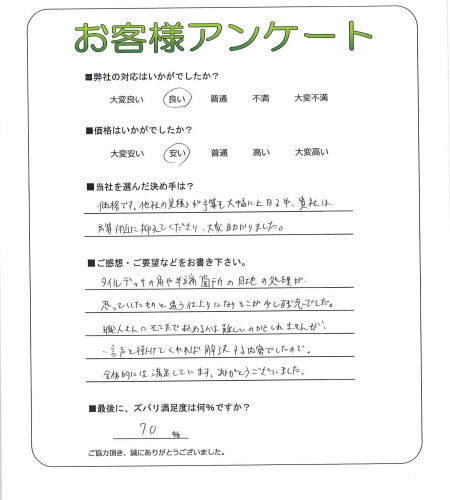 お客様アンケート
■弊社の対応はいかがでしたか？
大変良い 良い 普通 不満 大変不満
■価格はいかがでしたか？
大変安い 安い 普通 高い 大変高い
■当社を選んだ決め手は？
価格です。他社の見積りが予算を大幅に上回る中、貴社は
予算付近に抑えてくださり、大変助かりました。
■ご感想・ご要望などをお書き下さい。
タイルデッキの角や 箇所の目地の処理が
思っていたものと違う仕上りになりそこが少し残念でした。
職人さんにそこまで求めるのは難しいのかもしれませんが、
一言声を掛けてくれれば解決する内容でしたので。
全体的には満足しています。ありがとうございました。
■最後に、ズバリ満足度は何％ですか？
70 ％
ご協力頂き、誠にありがとうございました。